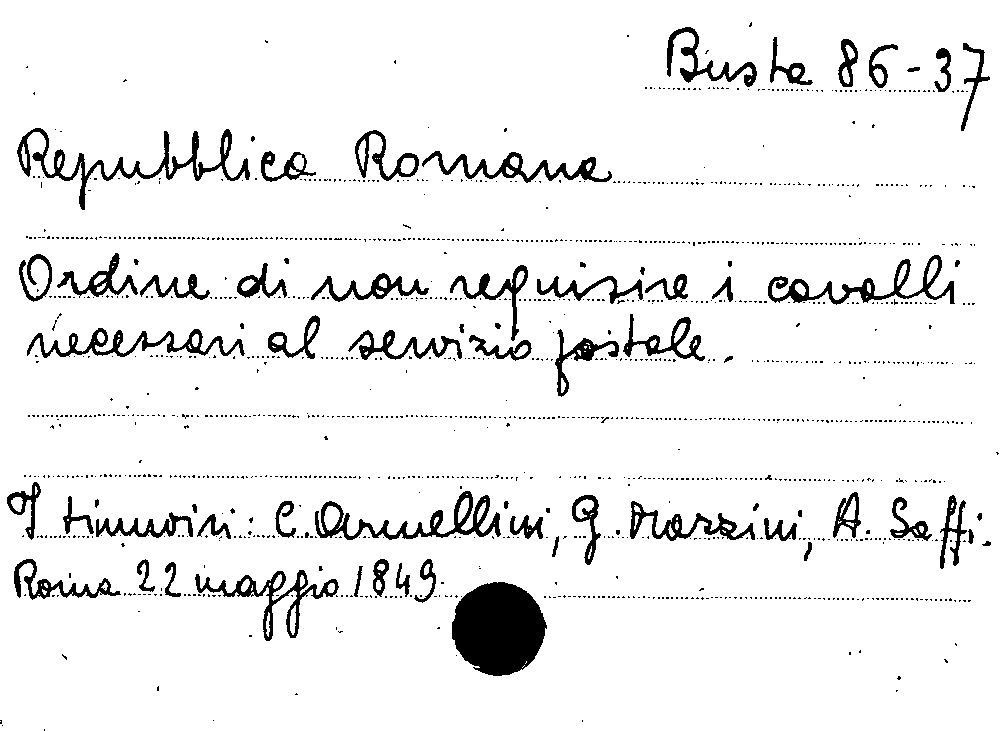 Busta 86-37
Repubblica Romana
Ordine di non requisire i cavalli
necessari al servizio postale.
I triumviri: C. Armellini, G. Mazzini, A. Saffi.
Roma 22 maggio 1849